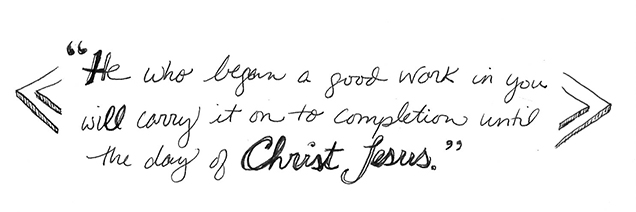 “He who began a good work in you
will carry it on to completion until
the day of Christ Jesus.”